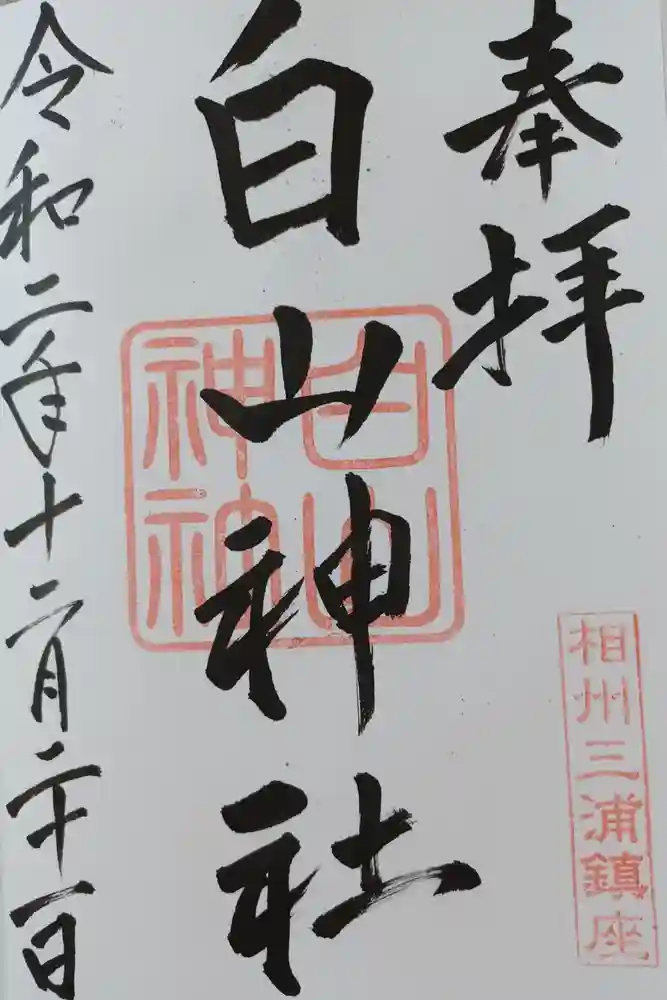 奉拝
相州三浦鎮座
白山神社
白山神神
令和二年十二月二十一日